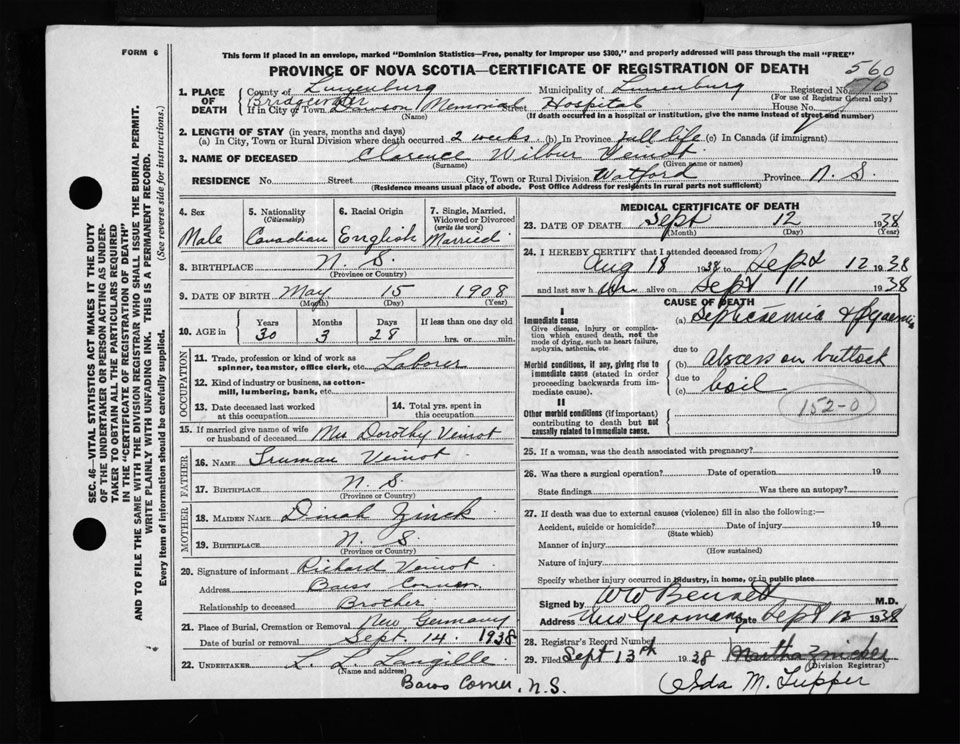 FORM 6
This form if placed in an envelope, marked "Dominion Statistics—Free, penalty for improper use $300," and properly addressed will pass through the mail "FREE"
PROVINCE OF NOVA SCOTIA—CERTIFICATE OF REGISTRATION OF DEATH
560
1. PLACE OF DEATH
County of Lunenburg Municipality of Lunenburg Registered No.
(For use of Registrar General only)
Bridgewater
If in City or Town Dawson Memorial Hospital House No.
(Name) (If death occurred in a hospital or institution, give the name instead of street and number)
2. LENGTH OF STAY (in years, months and days)
(a) In City, Town or Rural Division where death occurred 2 weeks (b) In Province full life (c) In Canada (if immigrant)
3. NAME OF DECEASED Clarence Wilbur Veinot
(Surname) (Given name or names)
RESIDENCE No. Street City, Town or Rural Division Watford Province N. S.
(Residence means usual place of abode. Post Office Address for residents in rural parts not sufficient)
4. Sex
Male
5. Nationality
(Citizenship)
Canadian
6. Racial Origin
English
7. Single, Married, Widowed or Divorced
(write the word)
Married
8. BIRTHPLACE N. S.
(Province or Country)
9. DATE OF BIRTH May 15 1908
(Month) (Day) (Year)
10. AGE in Years Months Days If less than one day old
30 3 28 hrs. or min.
OCCUPATION
11. Trade, profession or kind of work as spinner, teamster, office clerk, etc. Laborer
12. Kind of industry or business, as cotton-mill, lumbering, bank, etc.
13. Date deceased last worked at this occupation
14. Total yrs. spent in this occupation
15. If married give name of wife or husband of deceased Mrs Dorothy Veinot
FATHER
16. NAME Truman Veinot
17. BIRTHPLACE N. S.
(Province or Country)
MOTHER
18. MAIDEN NAME Dinah Zinck
19. BIRTHPLACE N. S
(Province or Country)
20. Signature of informant Richard Veinot
Address Barss Corner
Relationship to deceased Brother
21. Place of Burial, Cremation or Removal New Germany
Date of burial or removal Sept. 14. 1938
22. UNDERTAKER L. L. Langille
(Name and address)
Barss Corner, N.S.
MEDICAL CERTIFICATE OF DEATH
23. DATE OF DEATH Sept 12 1938
(Month) (Day) (Year)
24. I HEREBY CERTIFY that I attended deceased from:
Aug 18 1938 to Sept 12 1938
and last saw him alive on Sept 11 1938
CAUSE OF DEATH
I
Immediate cause
Give disease, injury or complication which caused death, not the mode of dying, such as heart failure, asphyxia, asthenia, etc.
(a) Septicaemia & Pyaemia
due to
Morbid conditions, if any, giving rise to immediate cause (stated in order proceeding backwards from immediate cause).
(b) Abscess on buttock
due to
(c) boil
II
Other morbid conditions (if important) contributing to death but not causally related to immediate cause.
152-0
25. If a woman, was the death associated with pregnancy?
26. Was there a surgical operation? Date of operation 19
State findings Was there an autopsy?
27. If death was due to external causes (violence) fill in also the following:—
Accident, suicide or homicide? Date of injury 19
(State which)
Manner of injury
(How sustained)
Nature of injury
Specify whether injury occurred in industry, in home, or in public place
Signed by WW Bennett M.D.
Address New Germany Date Sept 12 1938
28. Registrar's Record Number
29. Filed Sept 13th 1938 Martha Zwicker
(Division Registrar)
Ida M. Tupper
SEC. 46—VITAL STATISTICS ACT MAKES IT THE DUTY OF THE UNDERTAKER OR PERSON ACTING AS UNDERTAKER TO OBTAIN ALL THE PARTICULARS REQUIRED IN THE "CERTIFICATE OF REGISTRATION OF DEATH" AND TO FILE THE SAME WITH THE DIVISION REGISTRAR WHO SHALL ISSUE THE BURIAL PERMIT.
WRITE PLAINLY WITH UNFADING INK. THIS IS A PERMANENT RECORD.
Every item of information should be carefully supplied. (See reverse side for instructions.)